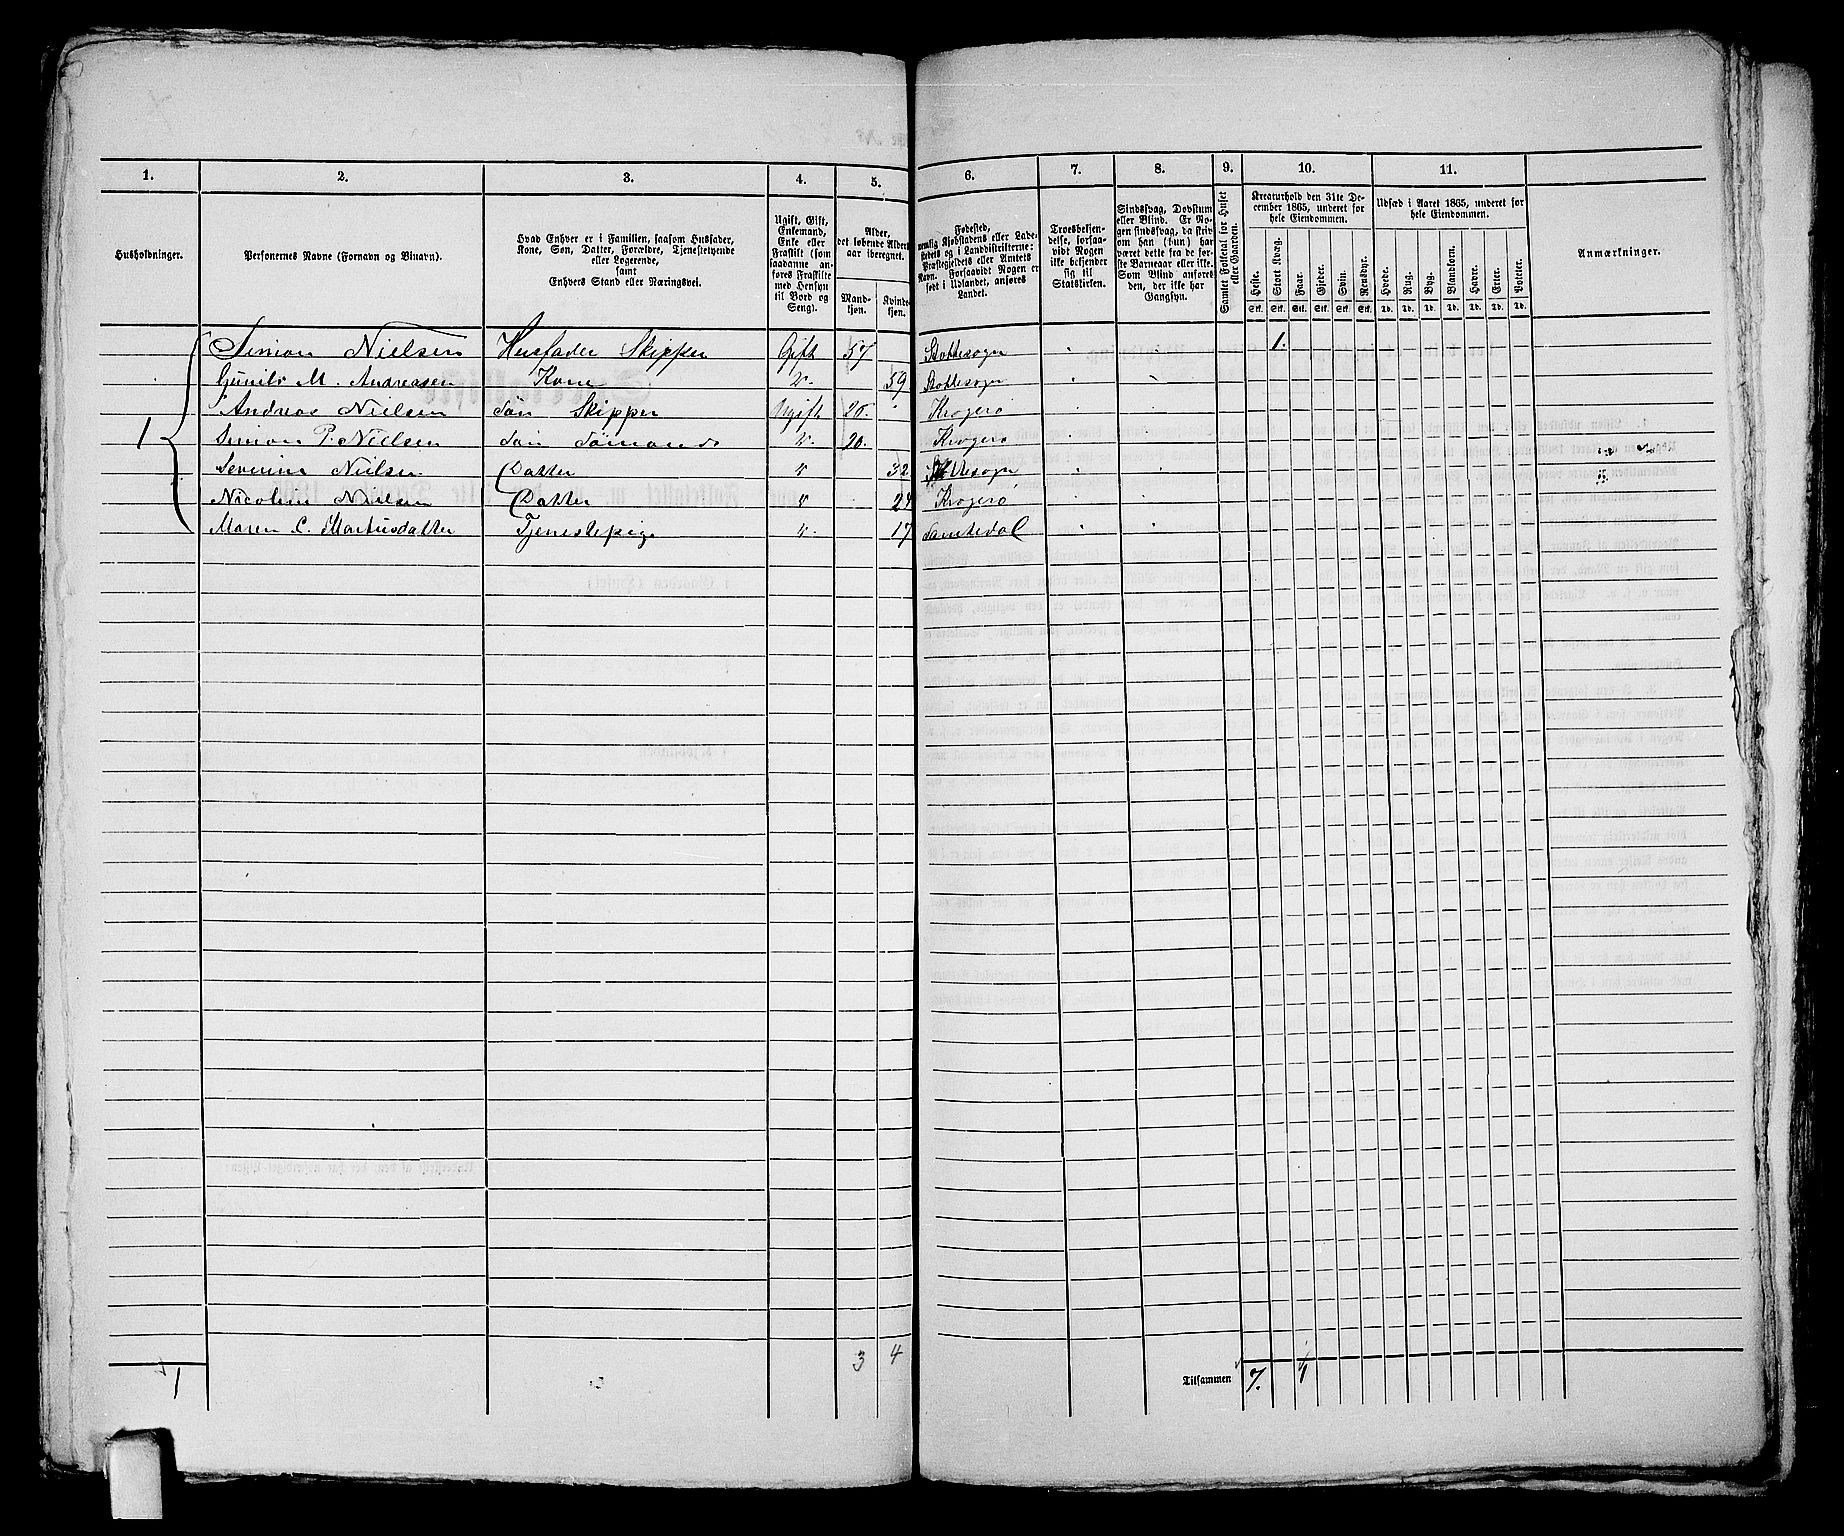 1. 2. 3. 4. 5. 6. 7. 8. 9. 10. 11.
Husholdninger.
Personernes Navne (Fornavn og Binavn).
Hvad Enhver er i Familien, saasom Husfader,
Kone, Søn, Datter, Forældre, Tjenestetyende
eller Logerende,
samt
Enhvers Stand eller Næringsvei.
Ugift, Gift,
Enkemand,
Enke eller
Fraskilt (som
saadanne an-
føres Fraskilte
med Hensyn
til Bord og
Seng).
Alder,
det løbende Alders-
aar iberegnet.
Mand-
kjøn.
Kvinde-
kjøn.
Fødested,
nemlig Kjøbstadens eller Lade-
stedets og i Landdistrikterne:
Præstegjeldets eller Amtets
Navn. Forsaavidt Nogen er
født i Udlandet, anføres
Landet.
Troesbekjen-
delse, forsaa-
vidt Nogen
ikke bekjender
sig til
Statskirken.
Sindssvag, Døvstum
eller Blind. Er No-
gen sindssvag, da skriv
om han (hun) har
været dette fra de før-
ste Barneaar eller ikke.
Som Blind anføres
den, der ikke har
Gangsyn.
Samlet Folketal for Huset
eller Gaarden.
Kreaturhold den 31te De-
cember 1865, underet for
hele Eiendommen.
Heste. Stort Kvæg. Faar. Gjeder. Svin. Rensdyr.
Stk. Stk. Stk. Stk. Stk. Stk.
Udsæd i Aaret 1865, underet for
hele Eiendommen.
Hvede. Rug. Byg. Blandkorn. Havre. Erter. Poteter.
Td. Td. Td. Td. Td. Td. Td.
Anmærkninger.
Simon Nielsen Husfader Skipper Gift 57 Skottesogn 1.
M. Andreasen Kone 59 Skottesogn
Andreas Nielsen Søn Skipper Ugift 26. Kragerø
1 Simon P. Nielsen Søn Sømand 20. Kragerø
Severine Nielsen Datter 32
Nicoline Nielsen Datter 24 Kragerø
Maren C. Datter Tjenestepige 17
3 4
1 Tilsammen 7. 1